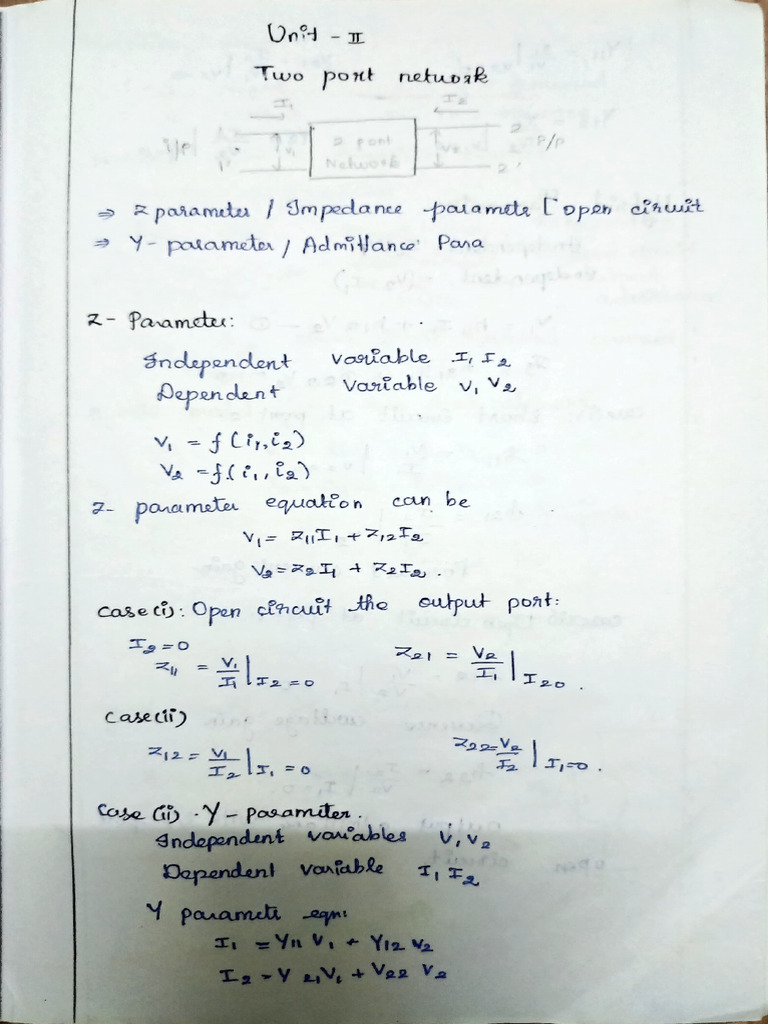 Unit - II
Two port network
I1 I2
I/P 1' V1 2 port Network V2 2 2' P/p
⇒ Z parameter / Impedance paramete [open circuit
⇒ Y - parameter / Admittance Para
Z - Parameter:
Independent variable I1 I2
Dependent variable V1 V2
V1 = f(i1, i2)
V2 = f(i1, i2)
Z- parameter equation can be
V1 = Z11I1 + Z12I2
V2 = Z2I1 + Z2I2.
case(i): Open circuit the output port:
I2 = 0
Z11 = V1/I1 | I2 = 0 Z21 = V2/I1 | I20.
case(ii)
Z12 = V1/I2 | I1 = 0 Z22 = V2/I2 | I1=0.
Case (ii) . Y - parameter.
Independent variables V1 V2
Dependent variable I1 I2
Y paramete eqn:
I1 = Y11 V1 + Y12 V2
I2 = Y 21V1 + V22 V2